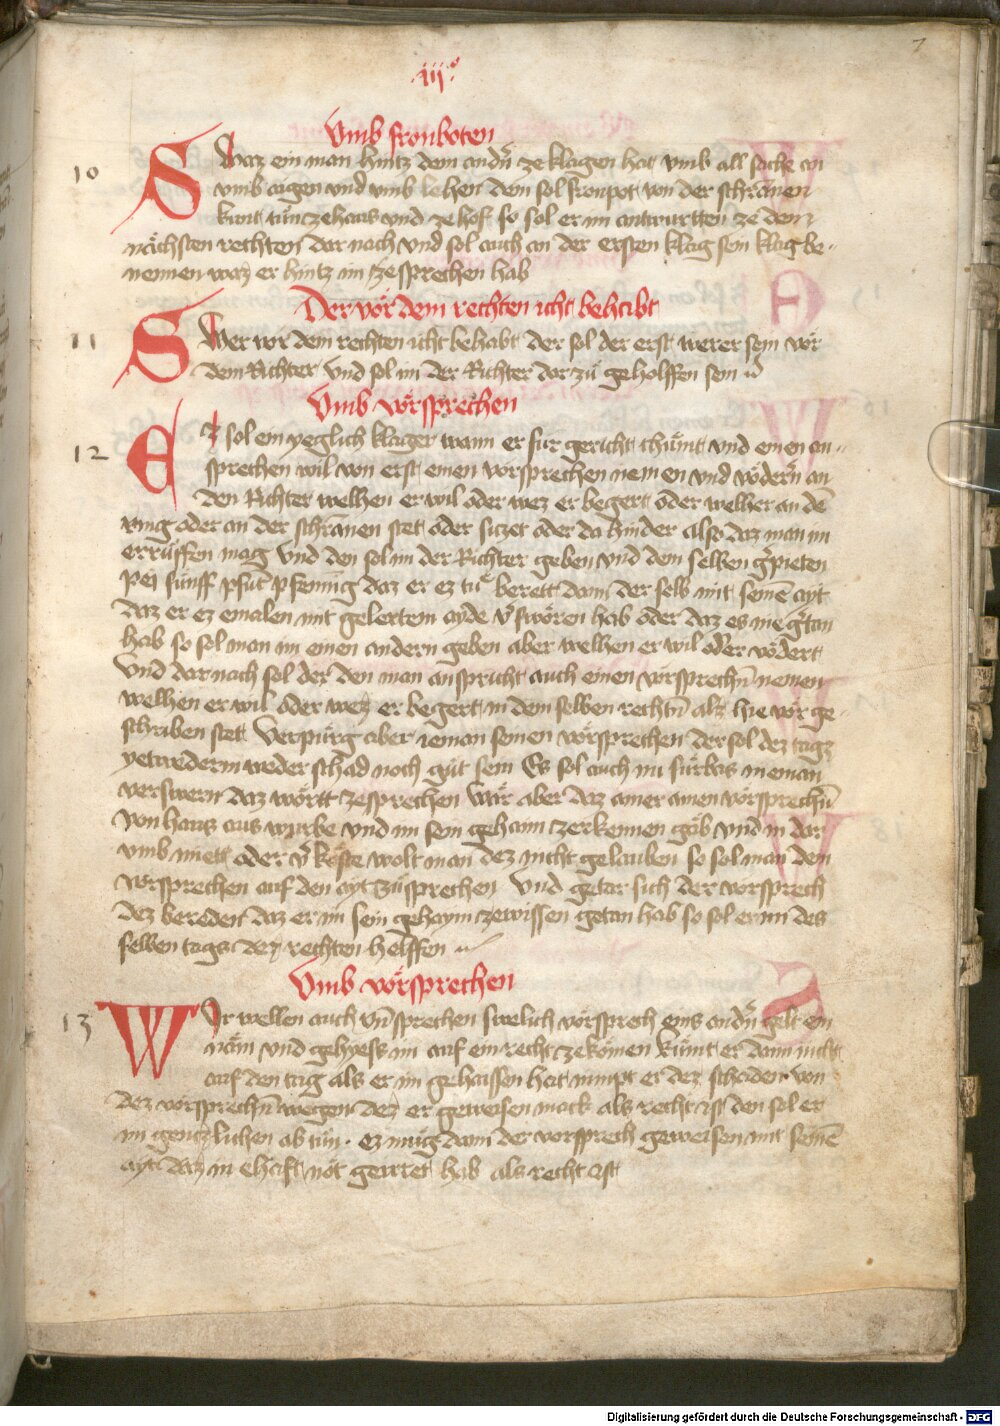 7
.iij.º
Vmb fronboten
10
Swaz ein man hintz dem andn̄ ze klagen hat vmb all sache an
vmb aigen vnd vmb lehen dem sol fronpot von der schrannen
kunt tůn ze haus vnd ze hof so sol er im antwurtten ze dem
nächsten rechten dar nach vnd sol auch an der ersten klag sein klag be-
nennen waz er hintz im ze sprechen hab
Der vor dem rechten icht behabt
11
Swer vor dem rechten icht behabt der sol der erst werer sein vor
dem Richter vnd sol im der Richter dar zů geholffen sein
Vmb vorsprechen
12
Ez sol ein yeglich klager wann er für gericht chümt vnd einen an
sprechen wil von erst einen vorsprechen nemen vnd vodern̄ an
den Richter welhen er wil oder wez er begert oder welher an dē
ring oder an der schrannen stet oder sitzet oder da hinder also daz man im
errüffen mag vnd den sol im der Richter geben vnd dem selben g̃pieten
pei fünff pfūt pfenning daz er ez tů berett dann der selb mit seinē ayt
daz er ez emalen mit gelertem ayde v̄sworen hab oder daz es nie g̃tan
hab so sol man im einen andern geben aber welhen er wil oder vodert
vnd dar nach sol der den man anspricht auch einen vorsprechn̄ nemen
welhen er wil oder wez er begert in dem selben rechtn̄ alz hie vor ge-
schriben stet Verpürg aber ieman seinen vorsprechen der sol dez tags
yetwederm weder schad noch gůt sein Es sol auch im fürbas nieman
verswern daz wortt ze sprechen Wär aber daz ainer ainen vorsprechn̄
von haus aus wurbe vnd im sein geheim ze erkennen gäb vnd in dar
vmb miett oder v̄koste wolt man dez nicht gelauben so sol man dem
vorsprechen auf den ayt zů sprechen Vnd getar sich der vorsprech
dez bereden daz er im sein gehaym ze wissen getan hab so sol er im des
selben tags dez rechten helffen
Vmb vorsprechen
13
Wir wellen auch vn̄ sprechen swelich vorsprech eins andn̄ gelt ein
näm vnd gehyess im auf ein recht ze komen Kumt er dann nicht
auf den tag als er im gehaissen hat nimpt er dez schaden von
dez vorsprechn̄ wegen dez er geweisen mack als recht ist den sol er
im gentzlichen ab tůn. ez mug dann der vorsprech geweisen mit seinē
ayt daz in ehaft not geirret hab als recht ist
Digitalisierung gefördert durch die Deutsche Forschungsgemeinschaft - DFG